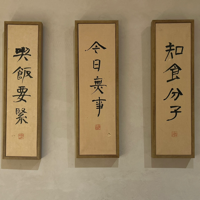 知食分子
今日無事
喫飯要緊